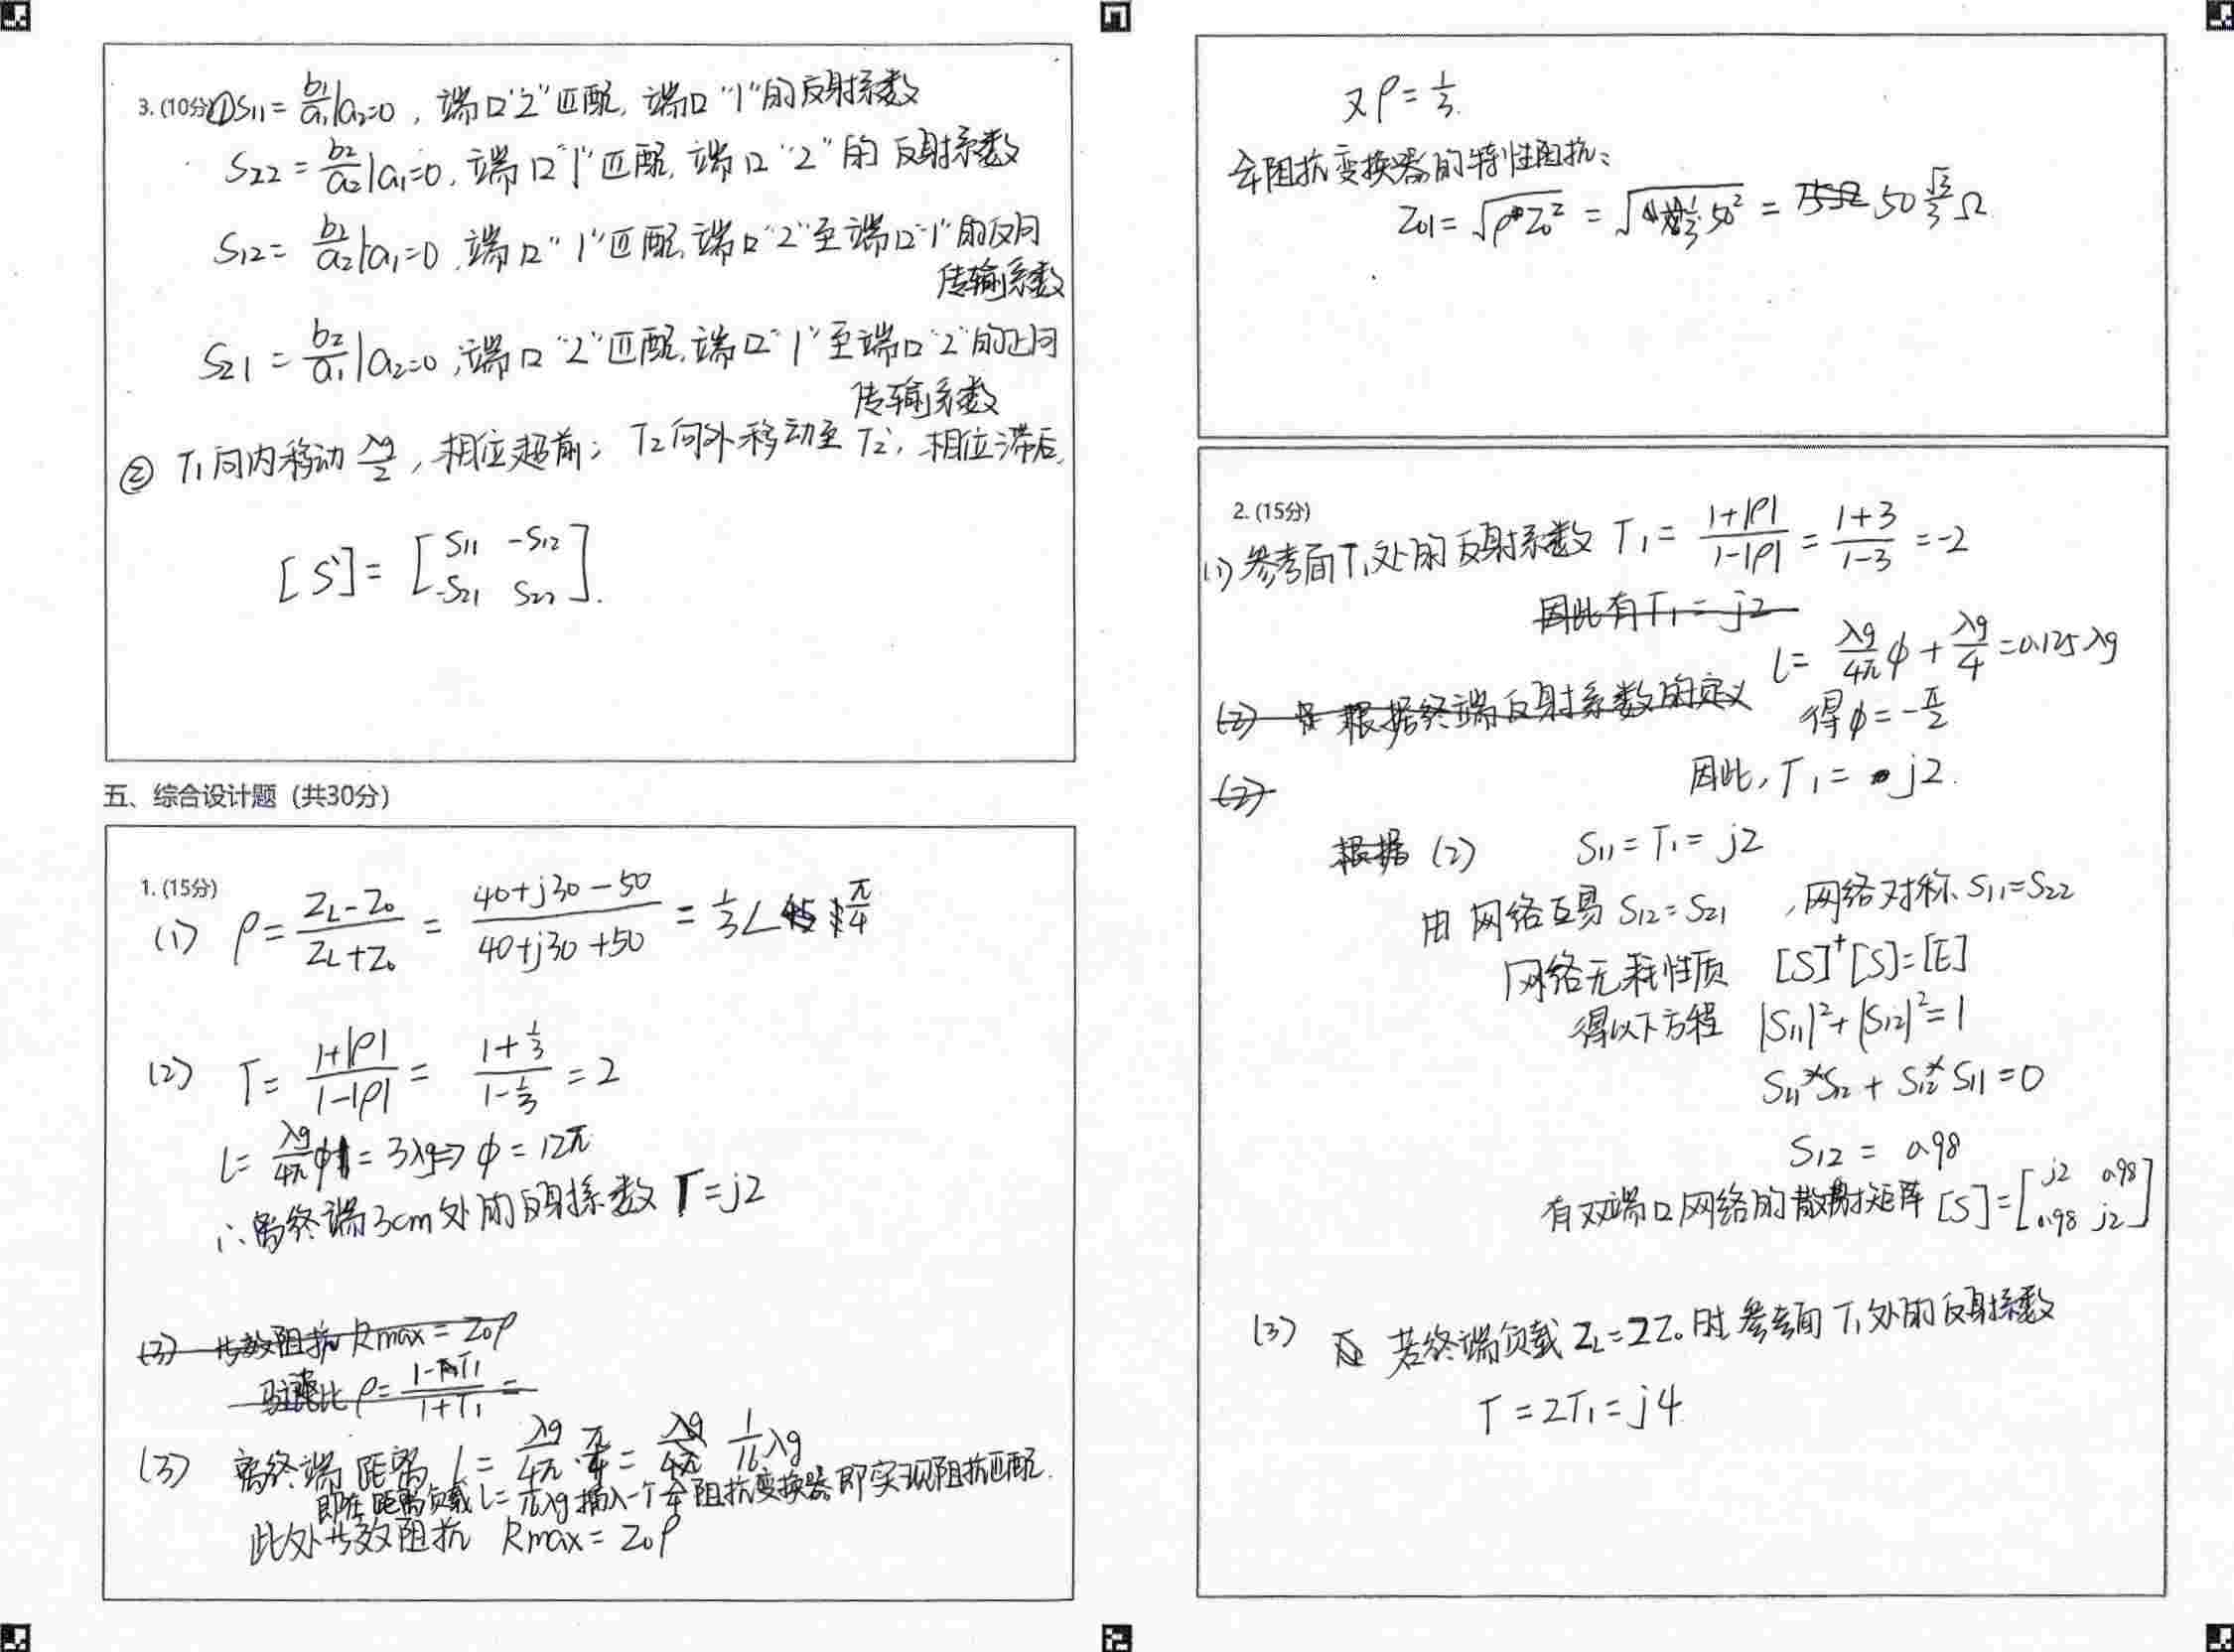 3. (10分) ① S11 = b1/a1 | a2=0 , 端口"2"匹配, 端口"1"的反射系数
S22 = b2/a2 | a1=0 , 端口"1"匹配, 端口"2"的反射系数
S12 = b1/a2 | a1=0 , 端口"1"匹配, 端口"2"至端口"1"的反向
传输系数
S21 = b2/a1 | a2=0 , 端口"2"匹配, 端口"1"至端口"2"的正向
传输系数
② T1向内移动 λg/2 , 相位超前; T2向外移动至T2', 相位滞后,
[S'] = [ S11 -S12
-S21 S22 ].
五、综合设计题 (共30分)
1. (15分)
(1) ρ = (ZL-Z0)/(ZL+Z0) = (40+j30-50)/(40+j30+50) = 1/3 ∠ π/4
(2) Γ = (1+|ρ|)/(1-|ρ|) = (1+1/3)/(1-1/3) = 2
l = λg/4π φ = 3λg ⇒ φ = 12π
∴ 离终端3cm处的反射系数 Γ = j2
(3) 等效阻抗 Rmax = Z0ρ
驻波比 ρ = (1-Γ1)/(1+Γ1) =
(3) 离终端距离 l = λg/4π · π/4 = 1/16 λg
即在距离负载 l = 1/16 λg 插入一个 λ/4 阻抗变换器即实现阻抗匹配.
此处等效阻抗 Rmax = Z0ρ
又 ρ = 1/3.
λ/4 阻抗变换器的特性阻抗:
Z01 = √(ρZ0²) = √(1/3 50²) = 50 √3/3 Ω
2. (15分)
(1) 参考面T1处的反射系数 Γ1 = (1+|ρ|)/(1-|ρ|) = (1+3)/(1-3) = -2
因此有 Γ1 = j2
l = λg/4π φ + λg/4 = 0.125λg
(2) 根据终端反射系数的定义
得 φ = -π/2
因此, Γ1 = j2.
(2)
根据 (2) S11 = Γ1 = j2
由网络互易 S12 = S21 , 网络对称 S11 = S22
网络无耗性质 [S]⁺[S] = [E]
得以下方程 |S11|² + |S12|² = 1
S11*S12 + S12*S11 = 0
S12 = 0.98
有双端口网络的散射矩阵 [S] = [ j2 0.98
0.98 j2 ]
(3) 若终端负载 ZL = 2Z0 时 参考面T1处的反射系数
Γ = 2Γ1 = j4